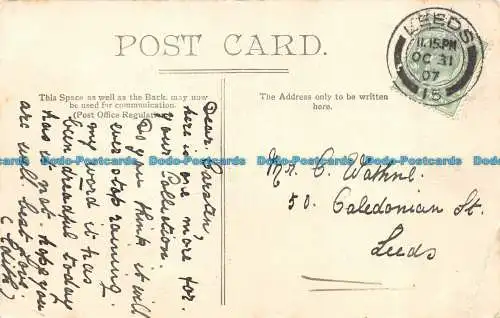 POST CARD.
This Space as well as the Back, may now
be used for communication.
(Post Office Regulation)
The Address only to be written
here.
LEEDS
11.15 PM
OC 31
07
15
Dear
here is one more for
your Collection.
Do you think it will
ever stop raining
my word it has
been dreadful today
has it not. hope you
are well. best love
(Edith)
Mr. C.
50. Caledonian St.
Leeds
Dodo-Postcards Dodo-Postcards Dodo-Postcards Dodo-Postcards Dodo-Postcards